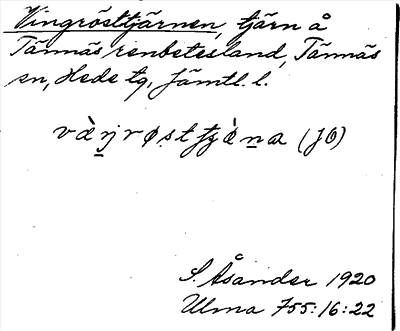 Vingrösttjärnen, tjärn å
Tännäs renbetesland, Tännäs
sn, Hede tg, Jämtl. l.
(JÖ)
S. Åsander 1920
Ulma 755:16:22